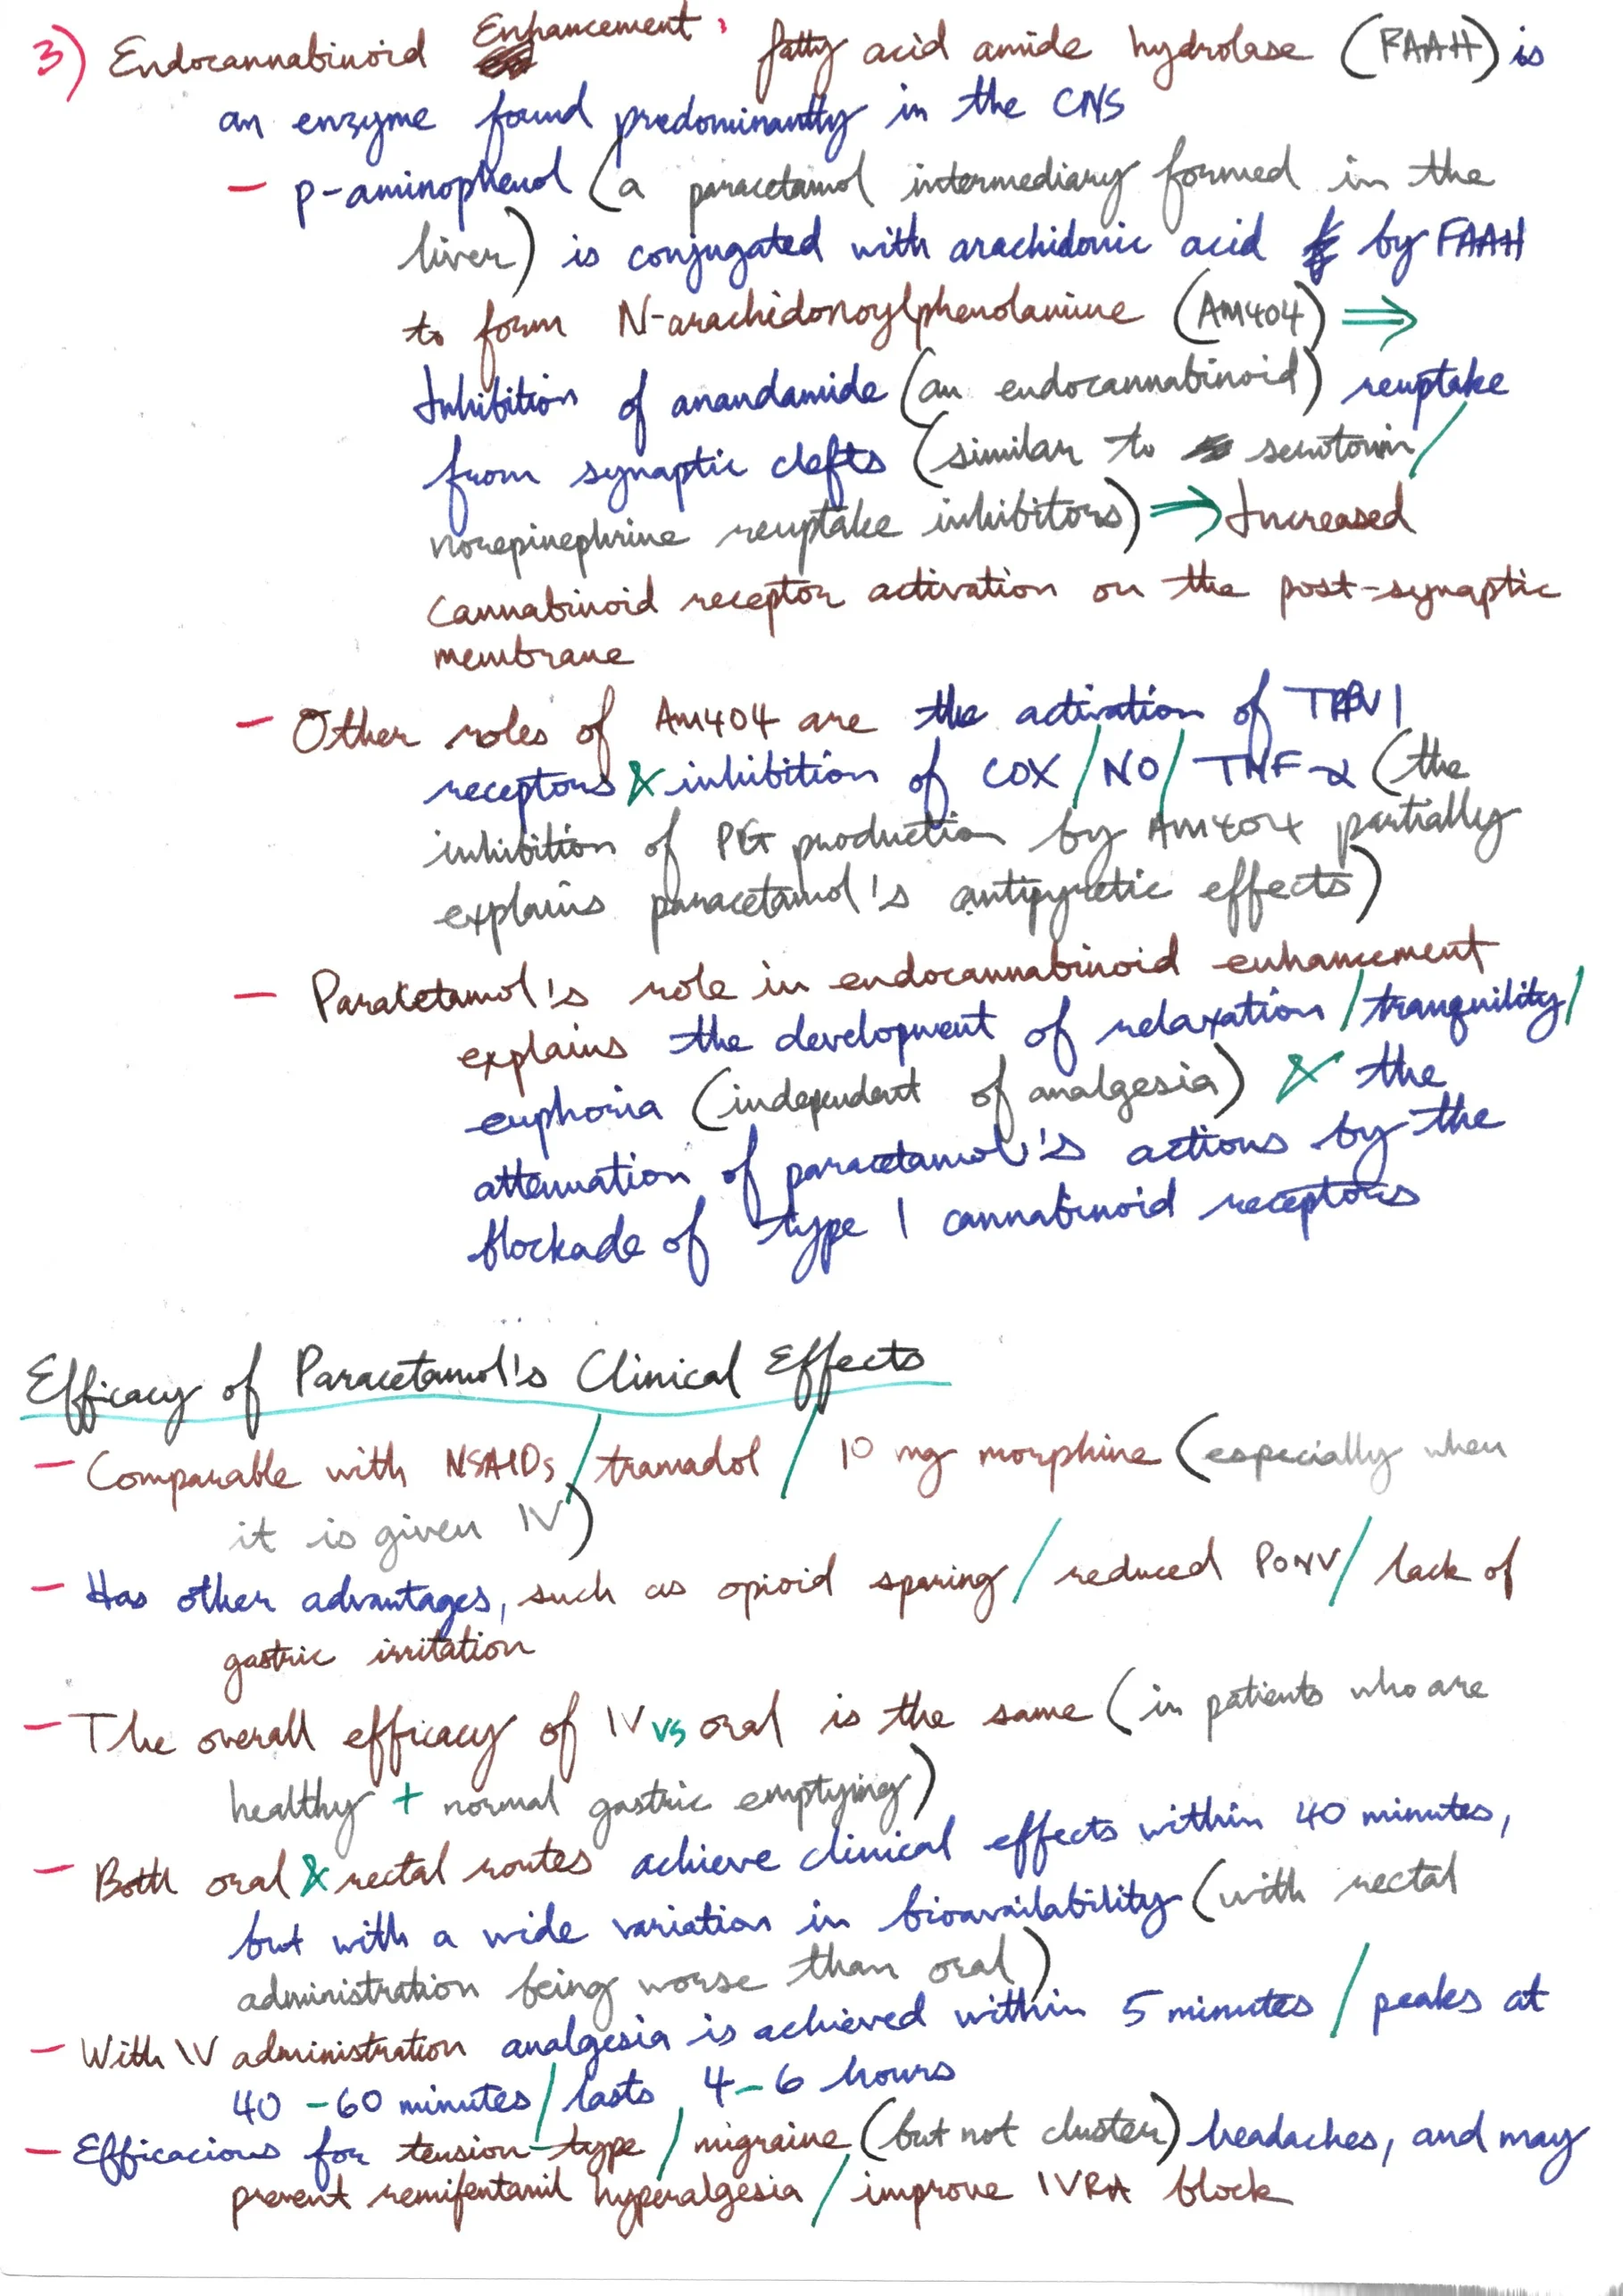 3) Endocannabinoid Enhancement: fatty acid amide hydrolase (FAAH) is
an enzyme found predominantly in the CNS
- p-aminophenol (a paracetamol intermediary formed in the
liver) is conjugated with arachidonic acid by FAAH
to form N-arachidonoylphenolamine (AM404) ⇒
Inhibition of anandamide (an endocannabinoid) reuptake
from synaptic clefts (similar to serotonin/
norepinephrine reuptake inhibitors) ⇒ Increased
cannabinoid receptor activation on the post-synaptic
membrane
- Other roles of AM404 are the activation of TRPV1
receptors & inhibition of COX/NO/TNF-α (the
inhibition of PG production by AM404 partially
explains paracetamol's antipyretic effects)
- Paracetamol's role in endocannabinoid enhancement
explains the development of relaxation/tranquility/
euphoria (independent of analgesia) & the
attenuation of paracetamol's actions by the
blockade of type 1 cannabinoid receptors
Efficacy of Paracetamol's Clinical Effects
- Comparable with NSAIDs/tramadol/10 mg morphine (especially when
it is given IV)
- Has other advantages, such as opioid sparing/reduced PONV/lack of
gastric irritation
- The overall efficacy of IV vs oral is the same (in patients who are
healthy + normal gastric emptying)
- Both oral & rectal routes achieve clinical effects within 40 minutes,
but with a wide variation in bioavailability (with rectal
administration being worse than oral)
- With IV administration analgesia is achieved within 5 minutes/peaks at
40-60 minutes/lasts 4-6 hours
- Efficacious for tension-type/migraine (but not cluster) headaches, and may
prevent remifentanil hyperalgesia/improve IVRA block